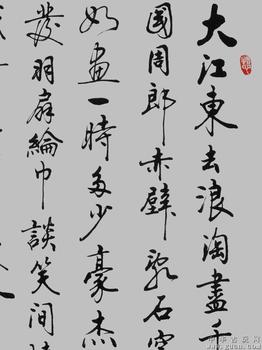 大江東去浪淘盡千
國周郎赤壁乱石
如畫一時多少豪杰
發羽扇綸巾談笑间